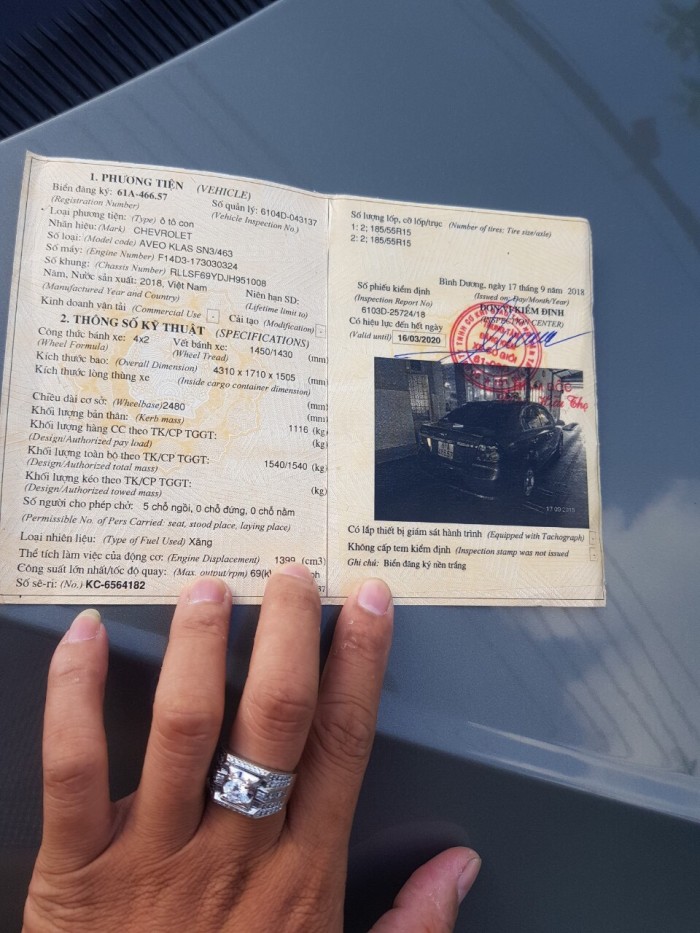 1. PHƯƠNG TIỆN (VEHICLE)
Biển đăng ký: 61A-466.57 Số quản lý: 6104D-043137
(Registration Number) (Vehicle Inspection No.)
Loại phương tiện: (Type) ô tô con
Nhãn hiệu: (Mark) CHEVROLET
Số loại: (Model code) AVEO KLAS SN3/463
Số máy: (Engine Number) F14D3-173030324
Số khung: (Chassis Number) RLLSF69YDJH951008
Năm, Nước sản xuất: 2018, Việt Nam Niên hạn SD:
(Manufactured Year and Country) (Lifetime limit to)
Kinh doanh vận tải (Commercial Use) - Cải tạo (Modification) -
2. THÔNG SỐ KỸ THUẬT (SPECIFICATIONS)
Công thức bánh xe: 4x2 Vết bánh xe: 1450/1430 (mm)
(Wheel Formula) (Wheel Tread)
Kích thước bao: (Overall Dimension) 4310 x 1710 x 1505 (mm)
Kích thước lòng thùng xe (Inside cargo container dimension)
(mm)
Chiều dài cơ sở: (Wheelbase) 2480 (mm)
Khối lượng bản thân: (Kerb mass) 1116 (kg)
Khối lượng hàng CC theo TK/CP TGGT: (kg)
(Design/Authorized pay load)
Khối lượng toàn bộ theo TK/CP TGGT: 1540/1540 (kg)
(Design/Authorized total mass)
Khối lượng kéo theo TK/CP TGGT: (kg)
(Design/Authorized towed mass)
Số người cho phép chở: 5 chỗ ngồi, 0 chỗ đứng, 0 chỗ nằm
(Permissible No. of Pers Carried: seat, stood place, laying place)
Loại nhiên liệu: (Type of Fuel Used) Xăng
Thể tích làm việc của động cơ: (Engine Displacement) 1399 (cm3)
Công suất lớn nhất/tốc độ quay: (Max. output/rpm) 69(k
Số sê-ri: (No.) KC-6564182
Số lượng lốp, cỡ lốp/trục (Number of tires: Tire size/axle)
1: 2; 185/55R15
2: 2; 185/55R15
Bình Dương, ngày 17 tháng 9 năm 2018
Số phiếu kiểm định (Issued on: Day/Month/Year)
(Inspection Report No) ĐƠN VỊ KIỂM ĐỊNH
6103D-25724/18 (INSPECTION CENTER)
Có hiệu lực đến hết ngày
(Valid until) 16/03/2020
Có lắp thiết bị giám sát hành trình (Equipped with Tachograph) -
Không cấp tem kiểm định (Inspection stamp was not issued -
Ghi chú: Biển đăng ký nền trắng